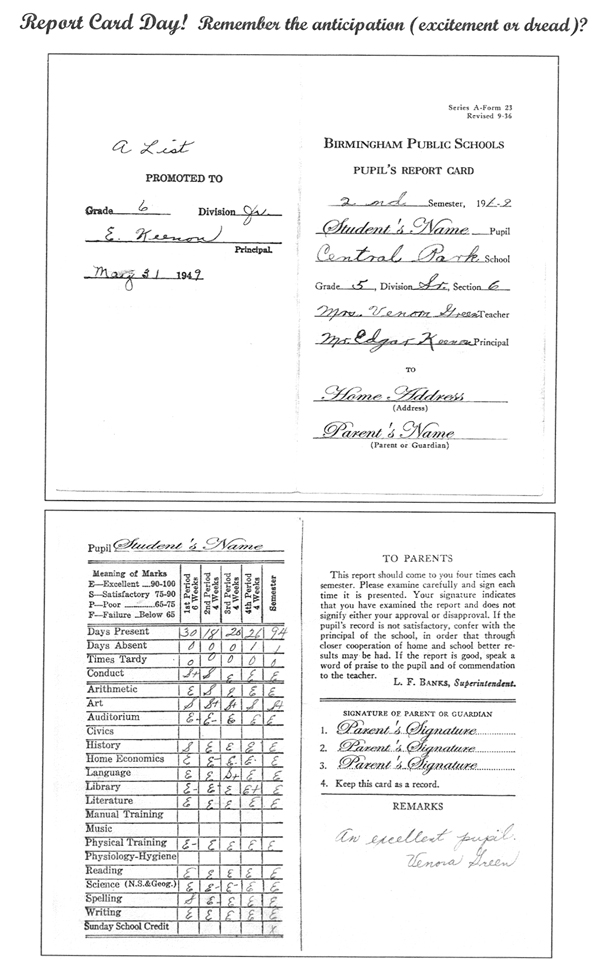 Report Card Day! Remember the anticipation (excitement or dread)?
A List
PROMOTED TO
Grade 6 Division Jr.
E. Keenon
Principal.
May 31 1949
Series A-Form 23
Revised 9-36
BIRMINGHAM PUBLIC SCHOOLS
PUPIL'S REPORT CARD
2 nd Semester, 194
Student's Name Pupil
Central Park School
Grade 5, Division Sr., Section 6
Mrs. Green Teacher
Mr. Edgar Keenon Principal
TO
Home Address
(Address)
Parent's Name
(Parent or Guardian)
Pupil Student's Name
Meaning of Marks
E—Excellent ....90-100
S—Satisfactory 75-90
P—Poor ............65-75
F—Failure ..Below 65
1st Period 6 Weeks
2nd Period 4 Weeks
3rd Period 4 Weeks
4th Period 4 Weeks
Semester
Days Present 30 18 20 26 94
Days Absent 0 0 0 1 1
Times Tardy 0 0 0 0 0
Conduct S+ S E E E
Arithmetic E S E E E
Art S S+ S+ S S+
Auditorium E- E- E E E
Civics
History S E E E E
Home Economics E E- E E E
Language E E S+ E E
Library E- E E E+ E
Literature E E E E E
Manual Training
Music
Physical Training E- E E E E
Physiology-Hygiene
Reading E E E E E
Science (N.S.&Geog.) E E- E- E E
Spelling S E- E E E
Writing E E E E E
Sunday School Credit X
TO PARENTS
This report should come to you four times each
semester. Please examine carefully and sign each
time it is presented. Your signature indicates
that you have examined the report and does not
signify either your approval or disapproval. If the
pupil's record is not satisfactory, confer with the
principal of the school, in order that through
closer cooperation of home and school better re-
sults may be had. If the report is good, speak a
word of praise to the pupil and of commendation
to the teacher.
L. F. BANKS, Superintendent.
SIGNATURE OF PARENT OR GUARDIAN
1. Parent's Signature
2. Parent's Signature
3. Parent's Signature
4. Keep this card as a record.
REMARKS
An excellent pupil.
Venora Green